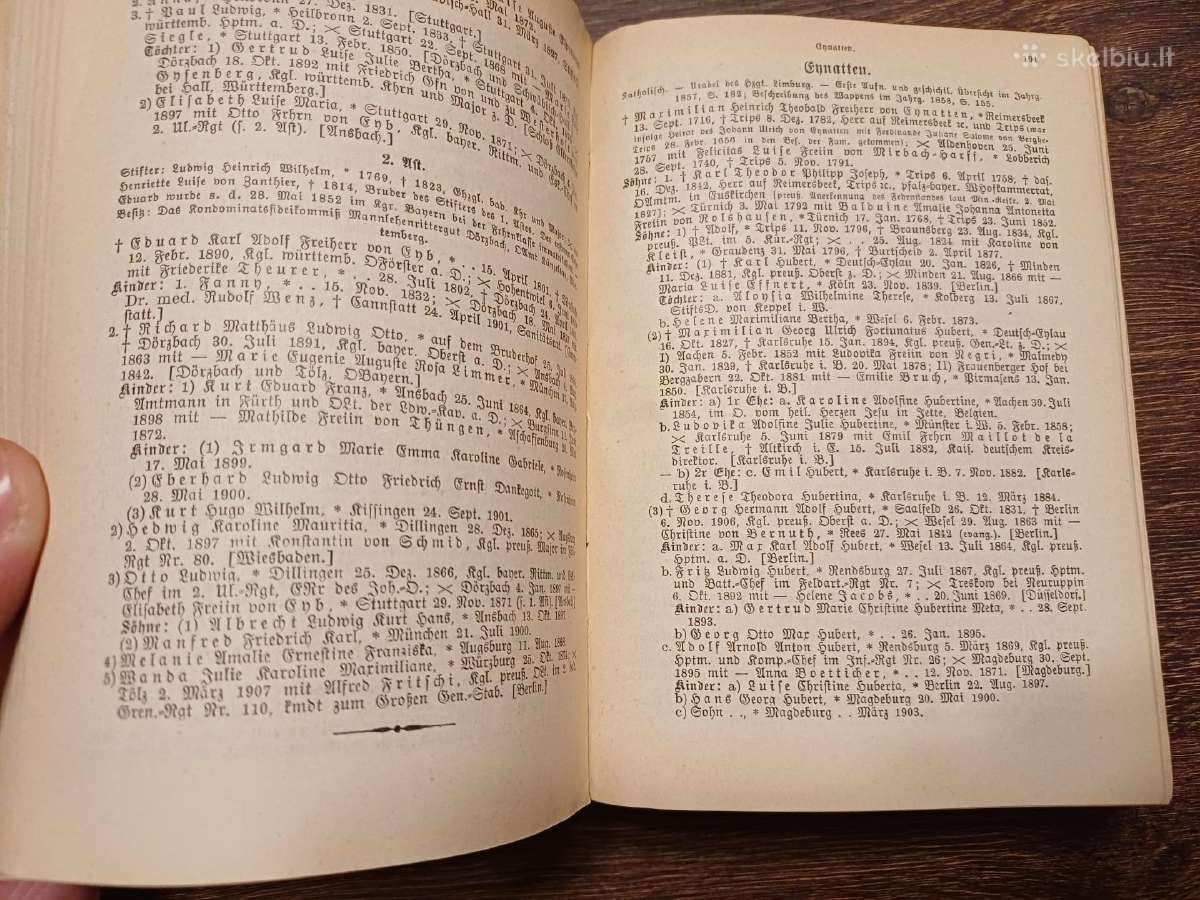 2. Anna,
27. Dez. 1831. [Stuttgart.]
3. † Paul Ludwig, * Heilbronn 2. Sept. 1833, † Stuttgart 31. Juli
württemb. Hptm. a. D.; ⚔ Stuttgart 22. Sept. 1868 mit
Siegle, * Stuttgart 13. Febr. 1850. [Dörzbach und
Töchter: 1) Gertrud Luise Julie Bertha, * Stuttgart
Dörzbach 18. Okt. 1892 mit Friedrich Gfn von und zu
Gysenberg, Kgl. württemb. Khrn und Major z. D. [Schloß
bei Hall, Württemberg.]
2) Elisabeth Luise Maria, * Stuttgart 29. Nov. 1871; ⚔ Dörzbach
1897 mit Otto Frhrn von Eyb, Kgl. bayer. Rittm. und
2. Ul.-Rgt (s. 2. Ast). [Ansbach.]
2. Ast.
Stifter: Ludwig Heinrich Wilhelm, * 1769, † 1823, Ghzgl. bad. Khr und Major;
Henriette Luise von Zanthier, † 1814, Bruder des Stifters des 1. Astes.
Eduard wurde s. d. 28. Mai 1852 im Kgr. Bayern bei der Frhrnklasse
Besitz: Das Kondominatsfideikommiß Mannlehenrittergut Dörzbach, OAmt Künzelsau,
temberg.
† Eduard Karl Adolf Freiherr von Eyb, * . . 15. April 1801, †
12. Febr. 1890, Kgl. württemb. OFörster a. D.; ⚔ Hohentwiel
mit Friederike Theurer, * . . 28. Juli 1802, † Dörzbach 24.
Kinder: 1. Fanny, * . . 15. Nov. 1832; ⚔ Dörzbach 16. Mai
Dr. med. Rudolf Wenz, † Cannstatt 24. April 1901, Sanitätsrat.
statt.]
2. † Richard Matthäus Ludwig Otto, * auf dem Bruderhof 25. Juli
† Dörzbach 30. Juli 1891, Kgl. bayer. Oberst a. D.; ⚔ Ansbach
1863 mit — Marie Eugenie Auguste Rosa Limmer, * München
1842. [Dörzbach und Tölz, OBayern.]
Kinder: 1) Kurt Eduard Franz, * Ansbach 25. Juni 1864, Kgl. bayer.
Amtmann in Fürth und OLt. der Ldw.-Kav. a. D.; ⚔ Burgsinn
1898 mit — Mathilde Freiin von Thüngen, * Aschaffenburg
1872.
Kinder: (1) Irmgard Marie Emma Karoline Gabriele, *
17. Mai 1899.
(2) Eberhard Ludwig Otto Friedrich Ernst Dankegott, *
28. Mai 1900.
(3) Kurt Hugo Wilhelm, * Kissingen 24. Sept. 1901.
2) Hedwig Karoline Mauritia, * Dillingen 28. Dez. 1865; ⚔ Augsburg
2. Okt. 1897 mit Konstantin von Schmid, Kgl. preuß. Major im
Rgt Nr. 80. [Wiesbaden.]
3) Otto Ludwig, * Dillingen 25. Dez. 1866, Kgl. bayer. Rittm. und Esk.-
Chef im 2. Ul.-Rgt, ERr des Joh.-O.; ⚔ Dörzbach 4. Jan. 1897 mit —
Elisabeth Freiin von Eyb, * Stuttgart 29. Nov. 1871 (s. 1. Ast). [Ansbach]
Söhne: (1) Albrecht Ludwig Kurt Hans, * Ansbach 13. Okt. 1897.
(2) Manfred Friedrich Karl, * München 21. Juli 1900.
4) Melanie Amalie Ernestine Franziska, * Augsburg 11. Aug. 1868.
5) Wanda Julie Karoline Maximiliane, * Würzburg 25. Okt. 1874; ⚔
Tölz 2. März 1907 mit Alfred Fritschi, Kgl. preuß. OLt. im 2. bad.
Gren.-Rgt Nr. 110, kmdt zum Großen Gen.-Stab. [Berlin.]
Eynatten.
191
Eynatten.
Katholisch. — Uradel des Hzgt. Limburg. — Erste Aufn. und geschichtl. Übersicht im Jahrg.
1857, S. 182; Beschreibung des Wappens im Jahrg. 1858, S. 155.
† Maximilian Heinrich Theobald Freiherr von Eynatten, * Reimersbeek
13. Sept. 1716, † Trips 8. Dez. 1782, Herr auf Reimersbeek ꝛc. und Trips (war
infolge Heirat des Johann Ulrich von Eynatten mit Ferdinande Juliane Salome von Berghe-
Trips 28. Febr. 1656 in den Bes. der Fam. gekommen); ⚔ Aldenhoven 25. Juni
1757 mit Felicitas Luise Freiin von Mirbach-Harff, * Lobberich
28. Sept. 1740, † Trips 5. Nov. 1791.
Söhne: 1. † Karl Theodor Philipp Joseph, * Trips 6. April 1758, † das.
16. Dez. 1842, Herr auf Reimersbeek, Trips ꝛc., pfalz-bayer. WHofkammerrat,
OAmtm. in Euskirchen (preuß. Anerkennung des Freiherrnstandes laut Min.-Reskr. 2. Mai
1827); ⚔ Türnich 3. Mai 1792 mit Balduine Amalie Johanna Antonetta
Freiin von Rolshausen, * Türnich 17. Jan. 1768, † Trips 23. Juni 1852.
Söhne: 1) † Adolf, * Trips 11. Nov. 1796, † Braunsberg 23. Aug. 1834, Kgl.
preuß. PLt. im 5. Kür.-Rgt; ⚔ . . 25. Aug. 1824 mit Karoline von
Kleist, * Graudenz 31. Mai 1796, † Burtscheid 2. April 1877.
Kinder: (1) † Karl Hubert, * Deutsch-Eylau 20. Jan. 1826, † Minden
11. Dez. 1881, Kgl. preuß. Oberst z. D.; ⚔ Minden 21. Aug. 1866 mit —
Maria Luise Effnert, * Köln 23. Nov. 1839. [Berlin.]
Töchter: a. Aloysia Wilhelmine Therese, * Kolberg 13. Juli 1867,
StiftsD. von Keppel i. W.
b. Helene Maximiliane Bertha, * Wesel 6. Febr. 1873.
(2) † Maximilian Georg Ulrich Fortunatus Hubert, * Deutsch-Eylau
16. Okt. 1827, † Karlsruhe 15. Jan. 1894, Kgl. preuß. Gen.-Lt. z. D.; ⚔
I) Aachen 5. Febr. 1852 mit Ludovika Freiin von Negri, * Malmedy
30. Jan. 1829, † Karlsruhe i. B. 20. Mai 1878; II) Frauenberger Hof bei
Bergzabern 22. Okt. 1881 mit — Emilie Bruch, * Pirmasens 13. Jan.
1850. [Karlsruhe i. B.]
Kinder: a) 1r Ehe: a. Karoline Adolfine Hubertine, * Aachen 30. Juli
1854, im O. vom heil. Herzen Jesu in Jette, Belgien.
b. Ludovika Adolfine Julie Hubertine, * Münster i. W. 5. Febr. 1858;
⚔ Karlsruhe 5. Juni 1879 mit Emil Frhrn Maillot de la
Treille, † Altkirch i. E. 15. Juli 1882, Kais. deutschem Kreis-
direktor. [Karlsruhe i. B.]
— b) 2r Ehe: c. Emil Hubert, * Karlsruhe i. B. 7. Nov. 1882. [Karls-
ruhe i. B.]
d. Therese Theodora Hubertina, * Karlsruhe i. B. 12. März 1884.
(3) † Georg Hermann Adolf Hubert, * Saalfeld 26. Okt. 1831, † Berlin
6. Nov. 1906, Kgl. preuß. Oberst a. D.; ⚔ Wesel 29. Aug. 1863 mit —
Christine von Bernuth, * Rees 27. Mai 1842 (evang.). [Berlin.]
Kinder: a. Max Karl Adolf Hubert, * Wesel 13. Juli 1864, Kgl. preuß.
Hptm. a. D. [Berlin.]
b. Fritz Ludwig Hubert, * Rendsburg 27. Juli 1867, Kgl. preuß. Hptm.
und Batt.-Chef im Feldart.-Rgt Nr. 7; ⚔ Treskow bei Neuruppin
6. Okt. 1892 mit — Helene Jacobs, * . . 20. Juni 1869. [Düsseldorf.]
Kinder: a) Gertrud Marie Christine Hubertine Meta, * . . 28. Sept.
1893.
b) Georg Otto Max Hubert, * . . 26. Jan. 1895.
c. Adolf Arnold Anton Hubert, * Rendsburg 5. März 1869, Kgl. preuß.
Hptm. und Komp.-Chef im Inf.-Rgt Nr. 26; ⚔ Magdeburg 30. Sept.
1895 mit — Anna Boetticher, * . . 12. Nov. 1871. [Magdeburg.]
Kinder: a) Luise Christine Huberta, * Berlin 22. Aug. 1897.
b) Hans Georg Hubert, * Magdeburg 20. Mai 1900.
c) Sohn . ., * Magdeburg . . März 1903.
skelbiu.lt